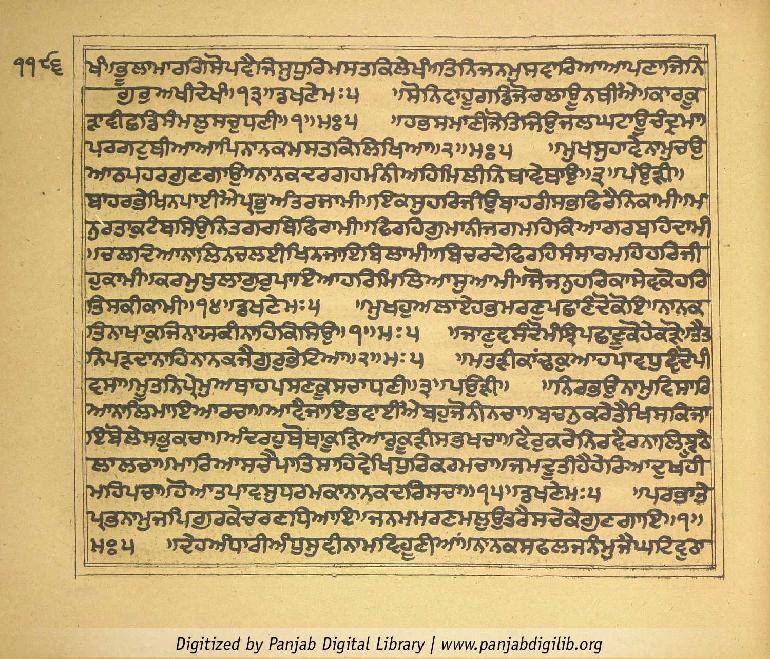 ੧੧੮੬
ਖੀ॥ਭੂਲਾਮਾਰਗਿਸੋਪਵੈਜਿਸੁਧੁਰਿਮਸਤਕਿਲੇਖੀ॥ਤਿਨਿਜਨਮੁਸਵਾਰਿਆਆਪਣਾਜਿਨਿ
ਗੁਰੁਅਖੀਦੇਖੀ॥੧੩॥ਡਖਣੇਮਃ੫ ॥ਸੋਨਿਵਾਹੂਗਡਿਜੋਚਲਾਊਨਥੀਐ॥ਕਾਰਕੂ
ੜਾਵੀਛਾਡਿਸੰਮਲੁਸਚੁਧਣੀ॥੧॥ਮਃ੫ ॥ਹਭਸਮਾਣੀਜੋਤਿਜਿਉਜਲਘਟਾਊਚੰਦ੍ਰਮਾ॥
ਪਰਗਟੁਥੀਆਆਪਿਨਾਨਕਮਸਤਕਿਲਿਖਿਆ॥੨॥ਮਃ੫ ॥ਮੁਖਸੁਹਾਵੇਨਾਮੁਚਉ
ਆਠਪਹਰਗੁਣਗਾਉ॥ਨਾਨਕਦਰਗਹਮੰਨੀਅਹਿਮਿਲੀਨਿਥਾਵੇਥਾਉ॥੩॥ਪਉੜੀ॥
ਬਾਹਰਭੇਖਿਨਪਾਈਐਪ੍ਰਭੁਅੰਤਰਜਾਮੀ॥ਇਕਸੁਹਰਿਜੀਉਬਾਹਰੀਸਭਫਿਰੈਨਿਕਾਮੀ॥ਮ
ਨੁਰਤਾਕੁਟੰਬਸਿਉਨਿਤਗਰਬਿਫਿਰਾਮੀ॥ਫਿਰਹਿਗੁਮਾਨੀਜਗਮਹਿਕਿਆਗਰਬਹਿਦਾਮੀ
॥ਚਲਦਿਆਨਾਲਿਨਚਲਈਖਿਨਜਾਇਬਿਲਾਮੀ॥ਬਿਚਰਦੇਫਿਰਹਿਸੰਸਾਰਮਹਿਹਰਿਜੀ
ਹੁਕਾਮੀ॥ਕਰਮੁਖੁਲਾਗੁਰੁਪਾਇਆਹਰਿਮਿਲਿਆਸੁਆਮੀ॥ਜੋਜਨੁਹਰਿਕਾਸੇਵਕੋਹਰਿ
ਤਿਸਕੀਕਾਮੀ॥੧੪॥ਡਖਣੇਮਃ੫ ॥ਮੁਖਹੁਅਲਾਏਹਭਮਰਣੁਪਛਾਣੰਦੋਕੋਇ॥ਨਾਨਕ
ਤਿਨਾਖਾਕੁਜਿਨਾਯਕੀਨਾਹਿਕਸਿਉ॥੧॥ਮਃ੫ ॥ਜਾਣੁਵਸੰਦੋਮੰਝਿਪਛਾਣੂਕੋਹੇਕੜੋ॥ਤੈਤ
ਨਿਪੜਦਾਨਾਹਿਨਾਨਕਜੈਗੁਰੁਭੇਟਿਆ॥੨॥ਮਃ੫ ॥ਮਤੜੀਕਾਂਢਕੁਆਹਪਾਵਧੋਵੰਦੋਪੀ
ਵਸਾ॥ਮੂਤਨਿਪ੍ਰੇਮੁਅਥਾਹਪਸਣਕੂਸਚਾਧਣੀ॥੩॥ਪਉੜੀ॥ ॥ਨਿਰਭਉਨਾਮੁਵਿਸਾਰਿ
ਆਨਾਲਿਮਾਇਆਰਚਾ॥ਆਵੈਜਾਇਭਵਾਈਐਬਹੁਜੋਨੀਨਚਾ॥ਬਚਨੁਕਰੇਤੈਖਿਸਕਿਜਾ
ਇਬੋਲੇਸਭੁਕਚਾ॥ਅੰਦਰਹੁਥੋਥਾਕੂੜਿਆਰੁਕੂੜੀਸਭਖਚਾ॥ਵੈਰੁਕਰੇਨਿਰਵੈਰਨਾਲਿਝੂਠੇ
ਲਾਲਚਾ॥ਮਾਰਿਆਸਚੈਪਾਤਿਸਾਹਿਵੇਖਿਧੁਰਿਕਰਮਚਾ॥ਜਮਦੂਤੀਹੈਹੇਰਿਆਦੁਖਹੀ
ਮਹਿਪਚਾ॥ਹੋਆਤਪਾਵਸੁਧਰਮਕਾਨਾਨਕਦਰਿਸਚਾ॥੧੫॥ਡਖਣੇਮਃ੫ ॥ਪਰਭਾਤੇ
ਪ੍ਰਭਨਾਮੁਜਪਿਗੁਰਕੇਚਰਣਧਿਆਇ॥ਜਨਮਮਰਣਮਲੁਉਤਰੈਸਚੇਕੇਗੁਣਗਾਇ॥੧॥
ਮਃ੫ ॥ਦੇਹਅੰਧਾਰੀਅੰਧੁਸੁਞੀਨਾਮਵਿਹੂਣੀਆ॥ਨਾਨਕਸਫਲਜਨੰਮੁਜੈਘਟਿਵੁਠਾ
Digitized by Panjab Digital Library | www.panjabdigilib.org